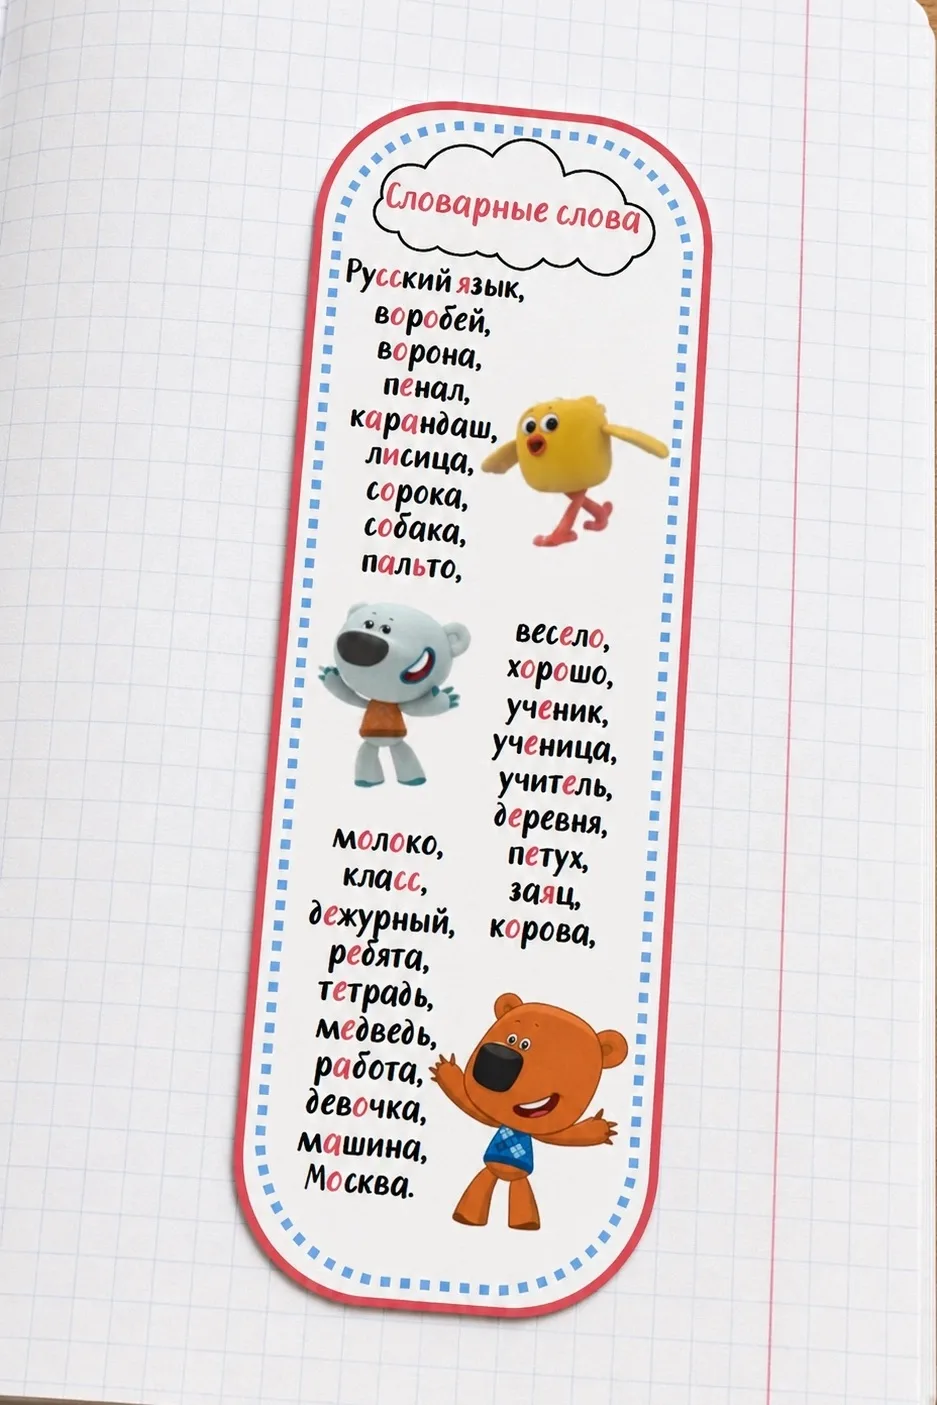 Словарные слова
Русский язык,
воробей,
ворона,
пенал,
карандаш,
лисица,
сорока,
собака,
пальто,
весело,
хорошо,
ученик,
ученица,
учитель,
деревня,
петух,
заяц,
корова,
молоко,
класс,
дежурный,
ребята,
тетрадь,
медведь,
работа,
девочка,
машина,
Москва.